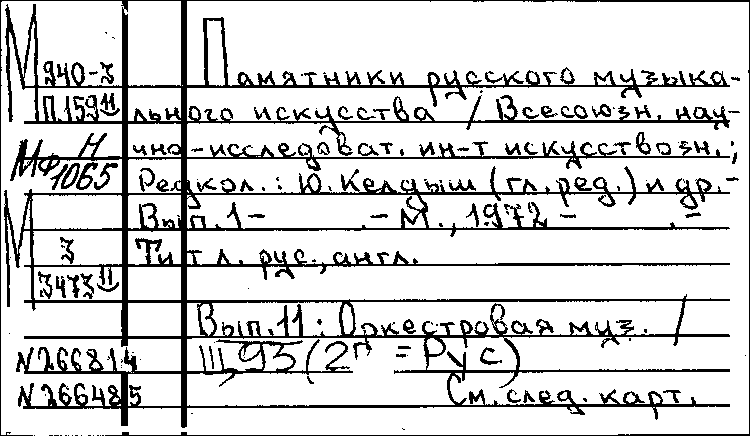 М 940-3 Памятники русского музыка-
П.159 11 льного искусства / Всесоюзн. науч-
Мф Н чно-исследоват. ин-т искусствозн.;
1065 Редкол.: Ю. Келдыш (гл. ред.) и др. -
М Вып. 1 - . - М., 1972 - . -
3 Тит л. рус., англ.
3473 11
Вып. 11: Оркестровая муз. /
N 266814 Щ93(2п = Рус)
N 266485 См. след. карт.